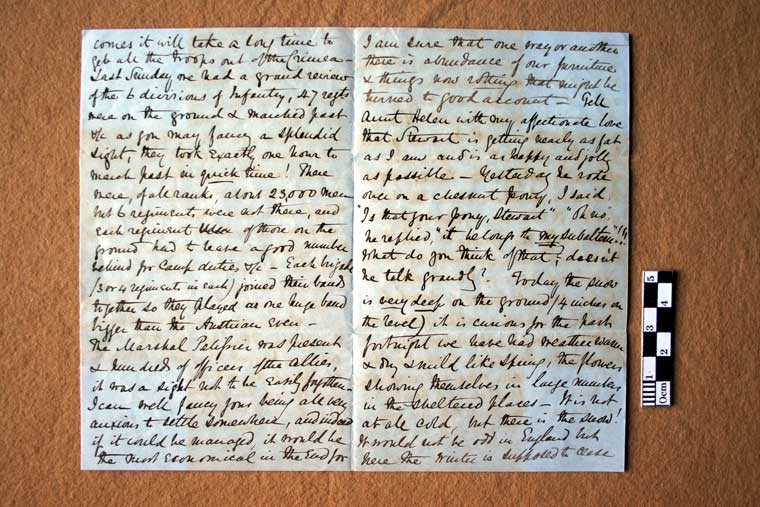 comes it will take a long time to
get all the troops out of the Crimea -
Last Sunday we had a grand review
of the 6 divisions of Infantry, 47 regts
were on the ground & marched past
&c as you may fancy a splendid
sight, they took exactly one hour to
march past in quick time! There
were, of all ranks, about 23,000 men
but 6 regiments were not there, and
each regiment of those on the
ground had to leave a good number
behind for Camp duties &c - Each brigade
(3 or 4 regiments in each) joined their band
together so they played as one huge band
bigger than the Austrian even -
The Marshal Pelissier was present
& hundreds of officers of the Allies,
it was a sight not to be easily forgotten
I can well fancy your being all very
anxious to settle somewhere, and indeed
if it could be managed it would be
the most economical in the end for
I am sure that one way or another
there is abundance of our furniture
& things now rotting that might be
turned to good account - Tell
Aunt Helen with my affectionate love
that Stewart is getting nearly as fat
as I am and is as happy and jolly
as possible - Yesterday he rode
over on a chesnut pony, I said
"Is that your pony, Stewart" "Oh no,"
he replied, "it belongs to my subaltern"!!!
What do you think of that? doesn't
he talk grandly? Today the snow
is very deep on the ground (4 inches on
the level) it is curious for the past
fortnight we have had weather warm
& dry & mild like spring, the flowers
showing themselves in large numbers
in the sheltered places - It is not
at all cold, but there is the snow!
It would not be odd in England but
here the winter is supposed to cease
0cm 1 2 3 4 5